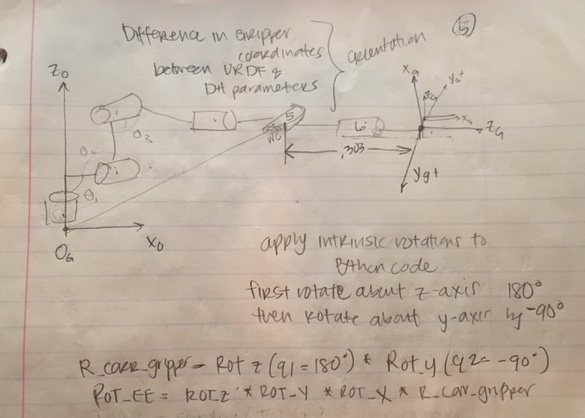 Difference in Gripper
coordinates
between URDF &
DH parameters
orientation
5
Z0
θ3
θ1
X0
5
WC
6
.303
XG
ZG
apply intrinsic rotations to
Python code
first rotate about z-axis 180°
then rotate about y-axis by -90°
R_corr_gripper = Rot z (q1=180°) * Rot_y (q2= -90°)
ROT_EE = ROT_Z * ROT_Y * ROT_X * R_corr_gripper